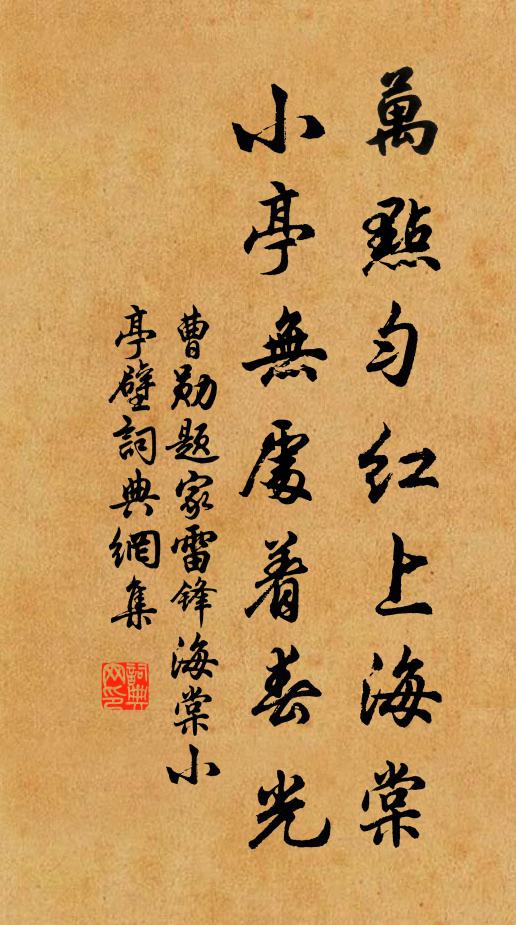 萬點勻紅上海棠
小亭無處着春光
曹勛題家雷鋒海棠小
亭壁詞典網集
詞典
网印